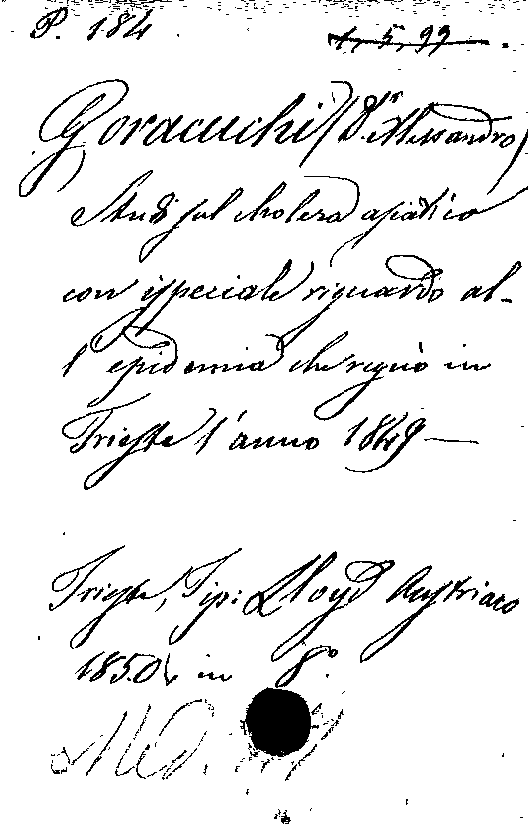 P. 184
1, 5, 99.
Goracuchi (Dr. Alessandro)
Studi sul cholera asiatico
con ispeciale riguardo al-
l'epidemia che regnò in
Trieste l'anno 1849 —
Trieste, Tip: Lloyd Austriaco
1850, in 8º.
Med.